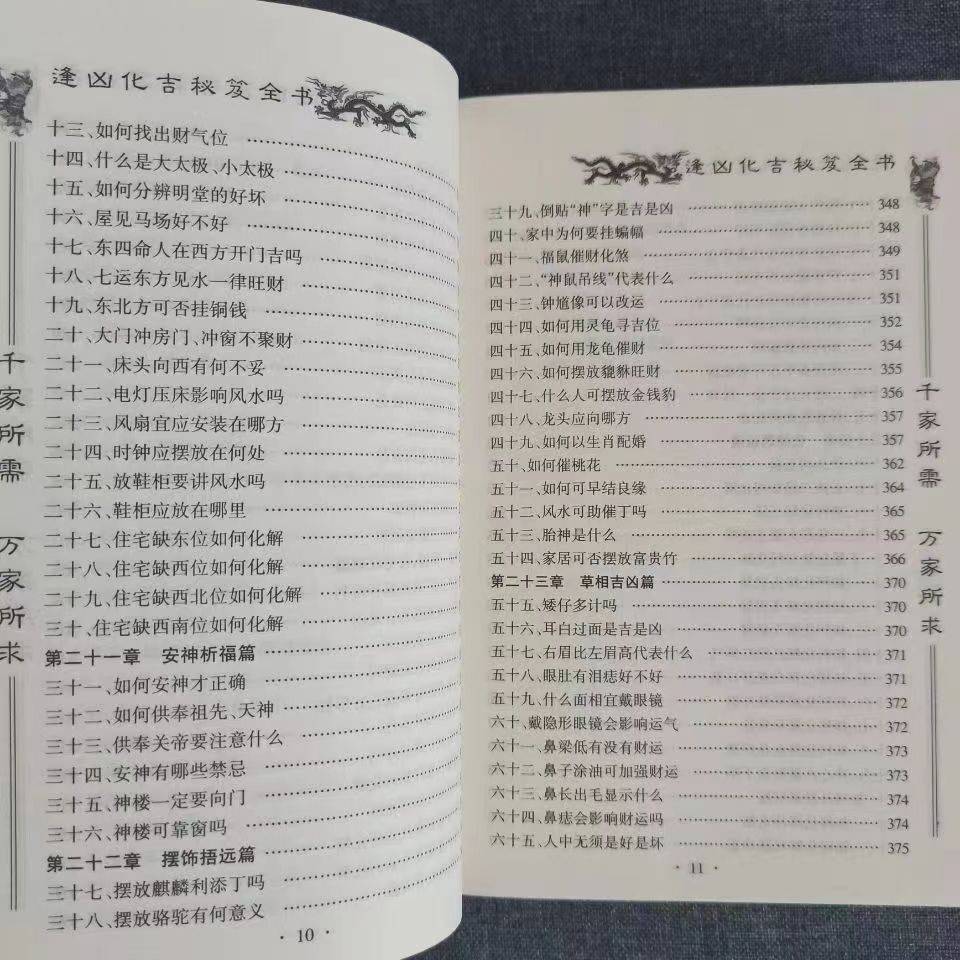 逢凶化吉秘笈全书
十三、如何找出财气位
十四、什么是大太极、小太极
十五、如何分辨明堂的好坏
十六、屋见马场好不好
十七、东四命人在西方开门吉吗
十八、七运东方见水一律旺财
十九、东北方可否挂铜钱
二十、大门冲房门、冲窗不聚财
二十一、床头向西有何不妥
二十二、电灯压床影响风水吗
二十三、风扇宜应安装在哪方
二十四、时钟应摆放在何处
二十五、放鞋柜要讲风水吗
二十六、鞋柜应放在哪里
二十七、住宅缺东位如何化解
二十八、住宅缺西位如何化解
二十九、住宅缺西北位如何化解
三十、住宅缺西南位如何化解
第二十一章 安神析福篇
三十一、如何安神才正确
三十二、如何供奉祖先、天神
三十三、供奉关帝要注意什么
三十四、安神有哪些禁忌
三十五、神楼一定要向门
三十六、神楼可靠窗吗
第二十二章 摆饰捂远篇
三十七、摆放麒麟利添丁吗
三十八、摆放骆驼有何意义
· 10 ·
千家所需 万家所求
逢凶化吉秘笈全书
三十九、倒贴“神”字是吉是凶 348
四十、家中为何要挂蝙幅 348
四十一、福鼠催财化煞 349
四十二、“神鼠吊线”代表什么 351
四十三、钟馗像可以改运 351
四十四、如何用灵龟寻吉位 352
四十五、如何用龙龟催财 354
四十六、如何摆放貔貅旺财 355
四十七、什么人可摆放金钱豹 356
四十八、龙头应向哪方 357
四十九、如何以生肖配婚 357
五十、如何催桃花 362
五十一、如何可早结良缘 364
五十二、风水可助催丁吗 365
五十三、胎神是什么 365
五十四、家居可否摆放富贵竹 366
第二十三章 草相吉凶篇 370
五十五、矮仔多计吗 370
五十六、耳白过面是吉是凶 370
五十七、右眉比左眉高代表什么 371
五十八、眼肚有泪痣好不好 371
五十九、什么面相宜戴眼镜 372
六十、戴隐形眼镜会影响运气 372
六十一、鼻梁低有没有财运 373
六十二、鼻子涂油可加强财运 373
六十三、鼻长出毛显示什么 374
六十四、鼻痣会影响财运吗 374
六十五、人中无须是好是坏 375
· 11 ·
千家所需 万家所求